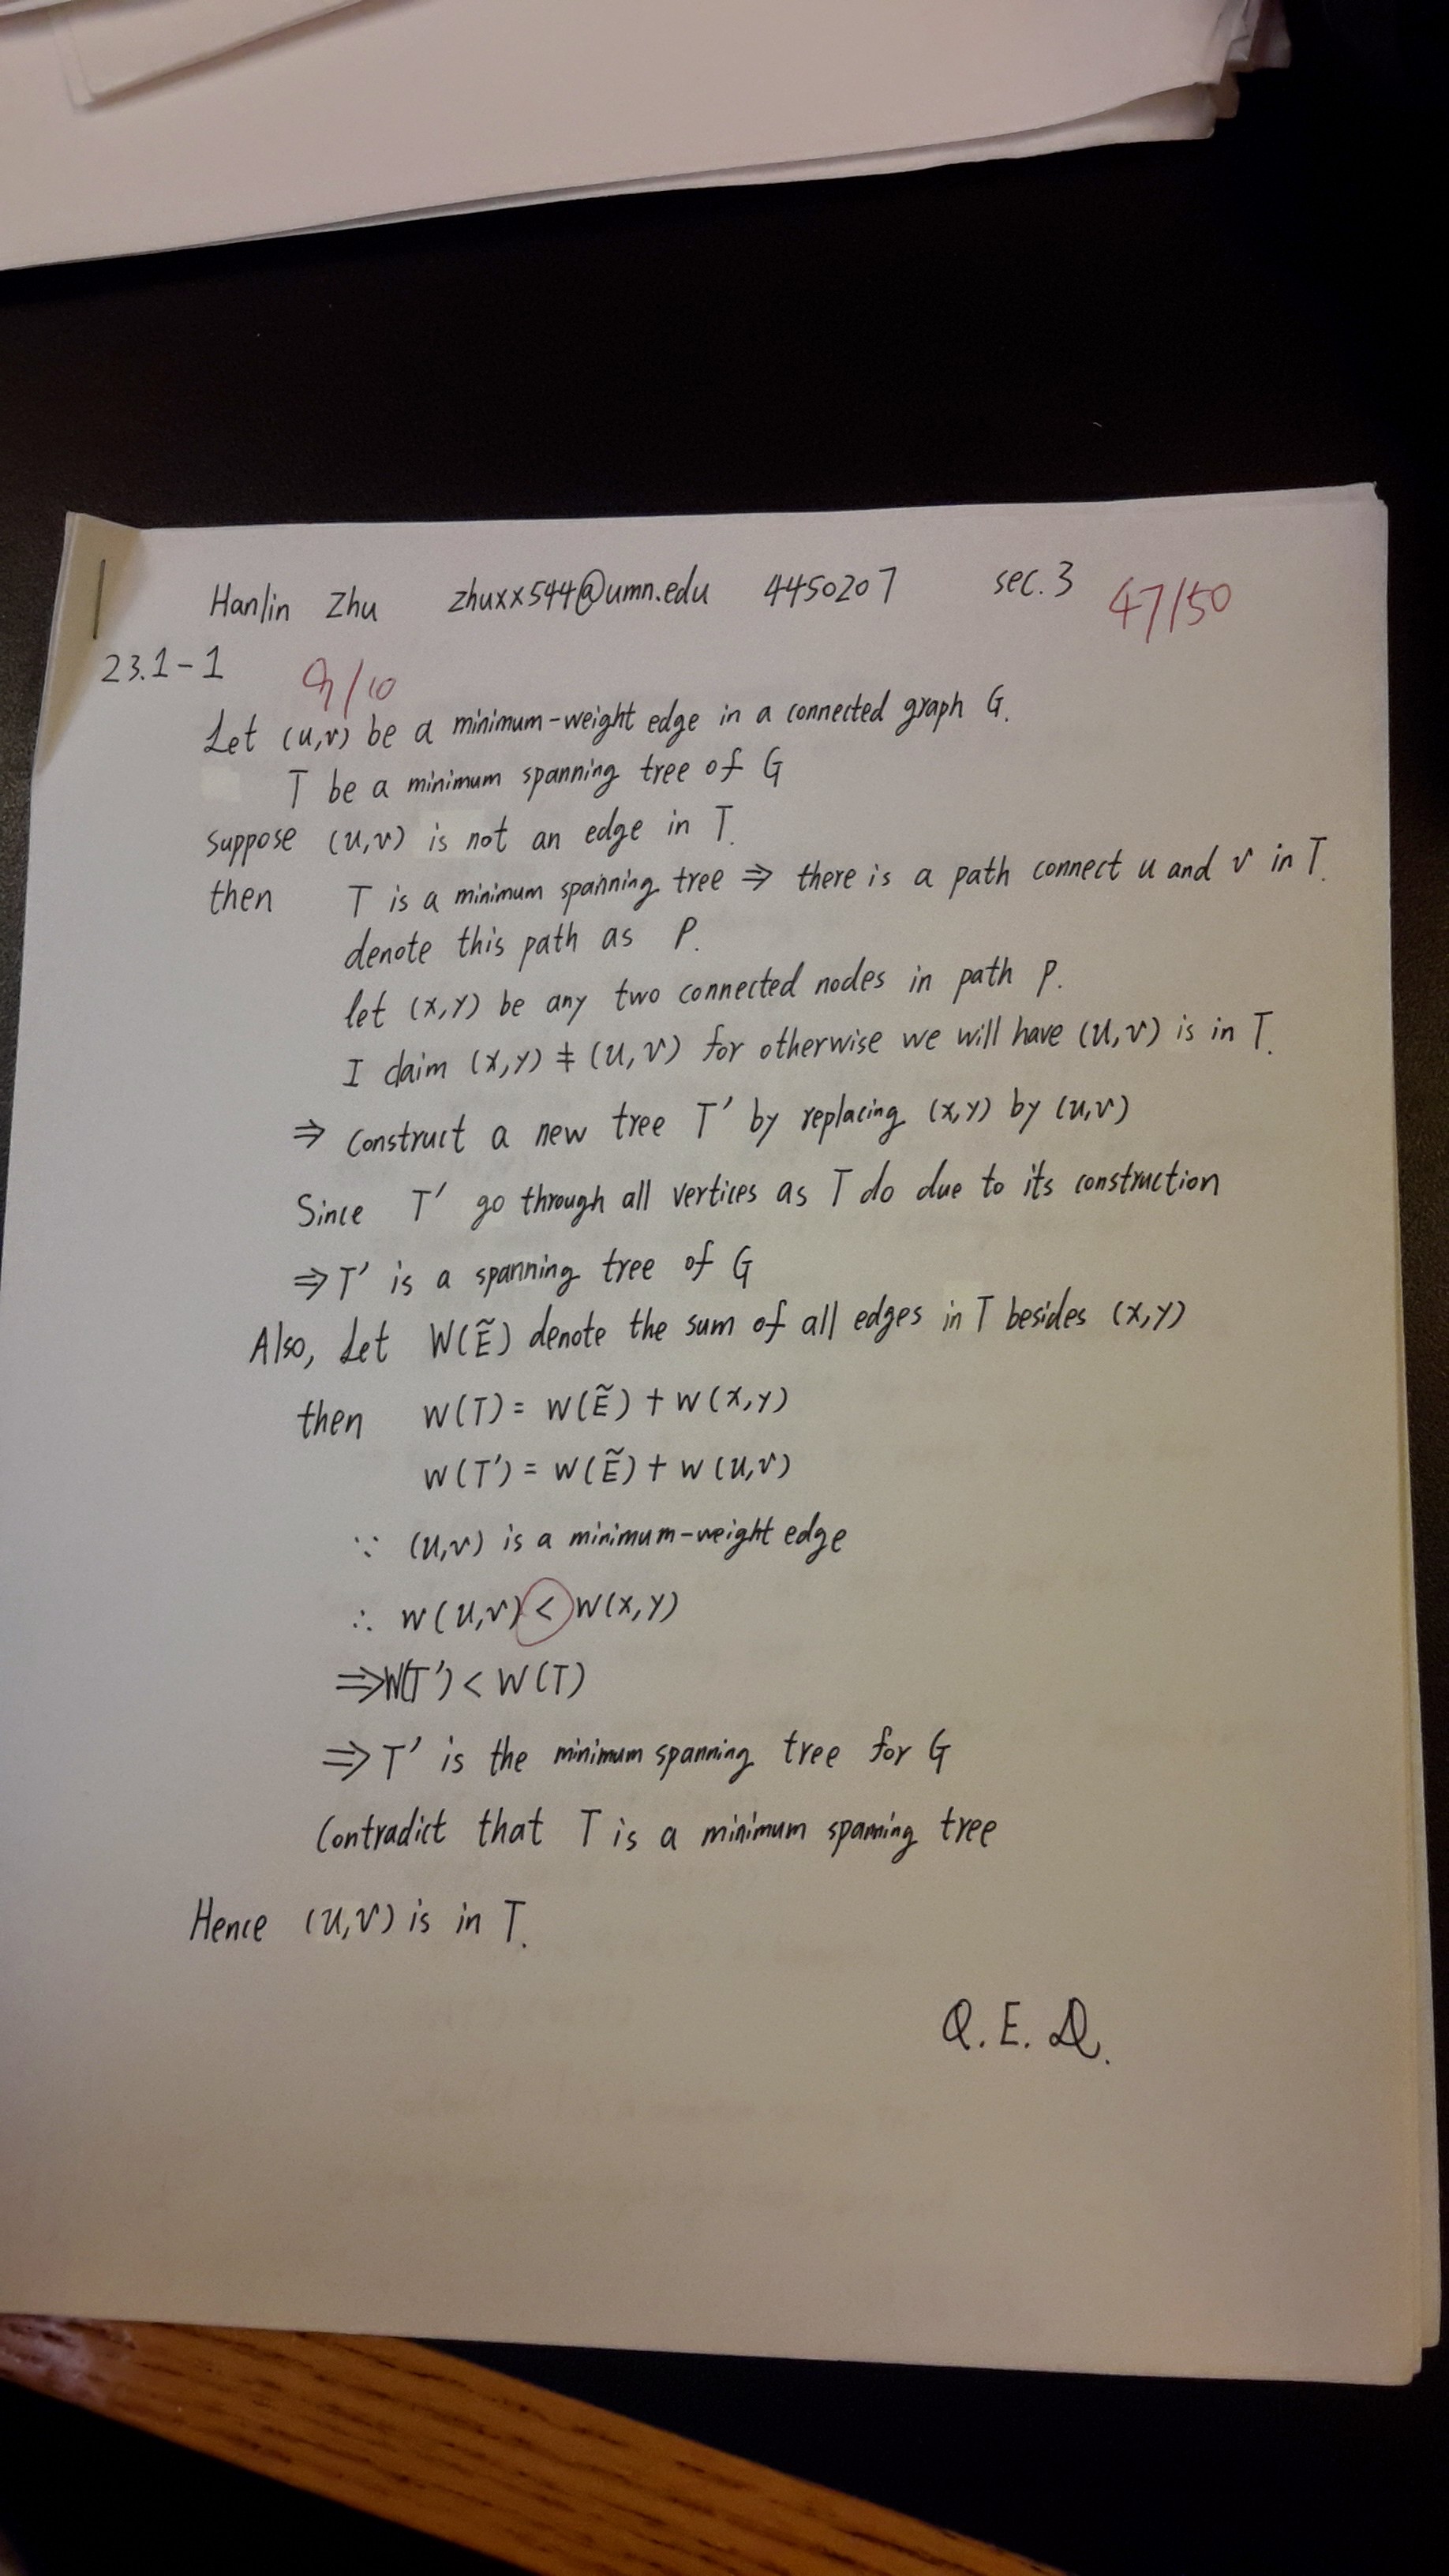 Hanlin Zhu zhuxx544@umn.edu 4450207 sec.3 47/50
23.1-1 9/10
Let (u,v) be a minimum-weight edge in a connected graph G.
T be a minimum spanning tree of G
suppose (u,v) is not an edge in T.
then T is a minimum spanning tree ⇒ there is a path connect u and v in T.
denote this path as P.
let (x,y) be any two connected nodes in path p.
I claim (x,y) ≠ (u,v) for otherwise we will have (u,v) is in T.
⇒ construct a new tree T' by replacing (x,y) by (u,v)
Since T' go through all vertices as T do due to its construction
⇒ T' is a spanning tree of G
Also, Let W(Ẽ) denote the sum of all edges in T besides (x,y)
then W(T) = W(Ẽ) + W(x,y)
W(T') = W(Ẽ) + W(u,v)
∵ (u,v) is a minimum-weight edge
∴ W(u,v) < W(x,y)
⇒ W(T') < W(T)
⇒ T' is the minimum spanning tree for G
Contradict that T is a minimum spanning tree
Hence (u,v) is in T.
Q.E.D.